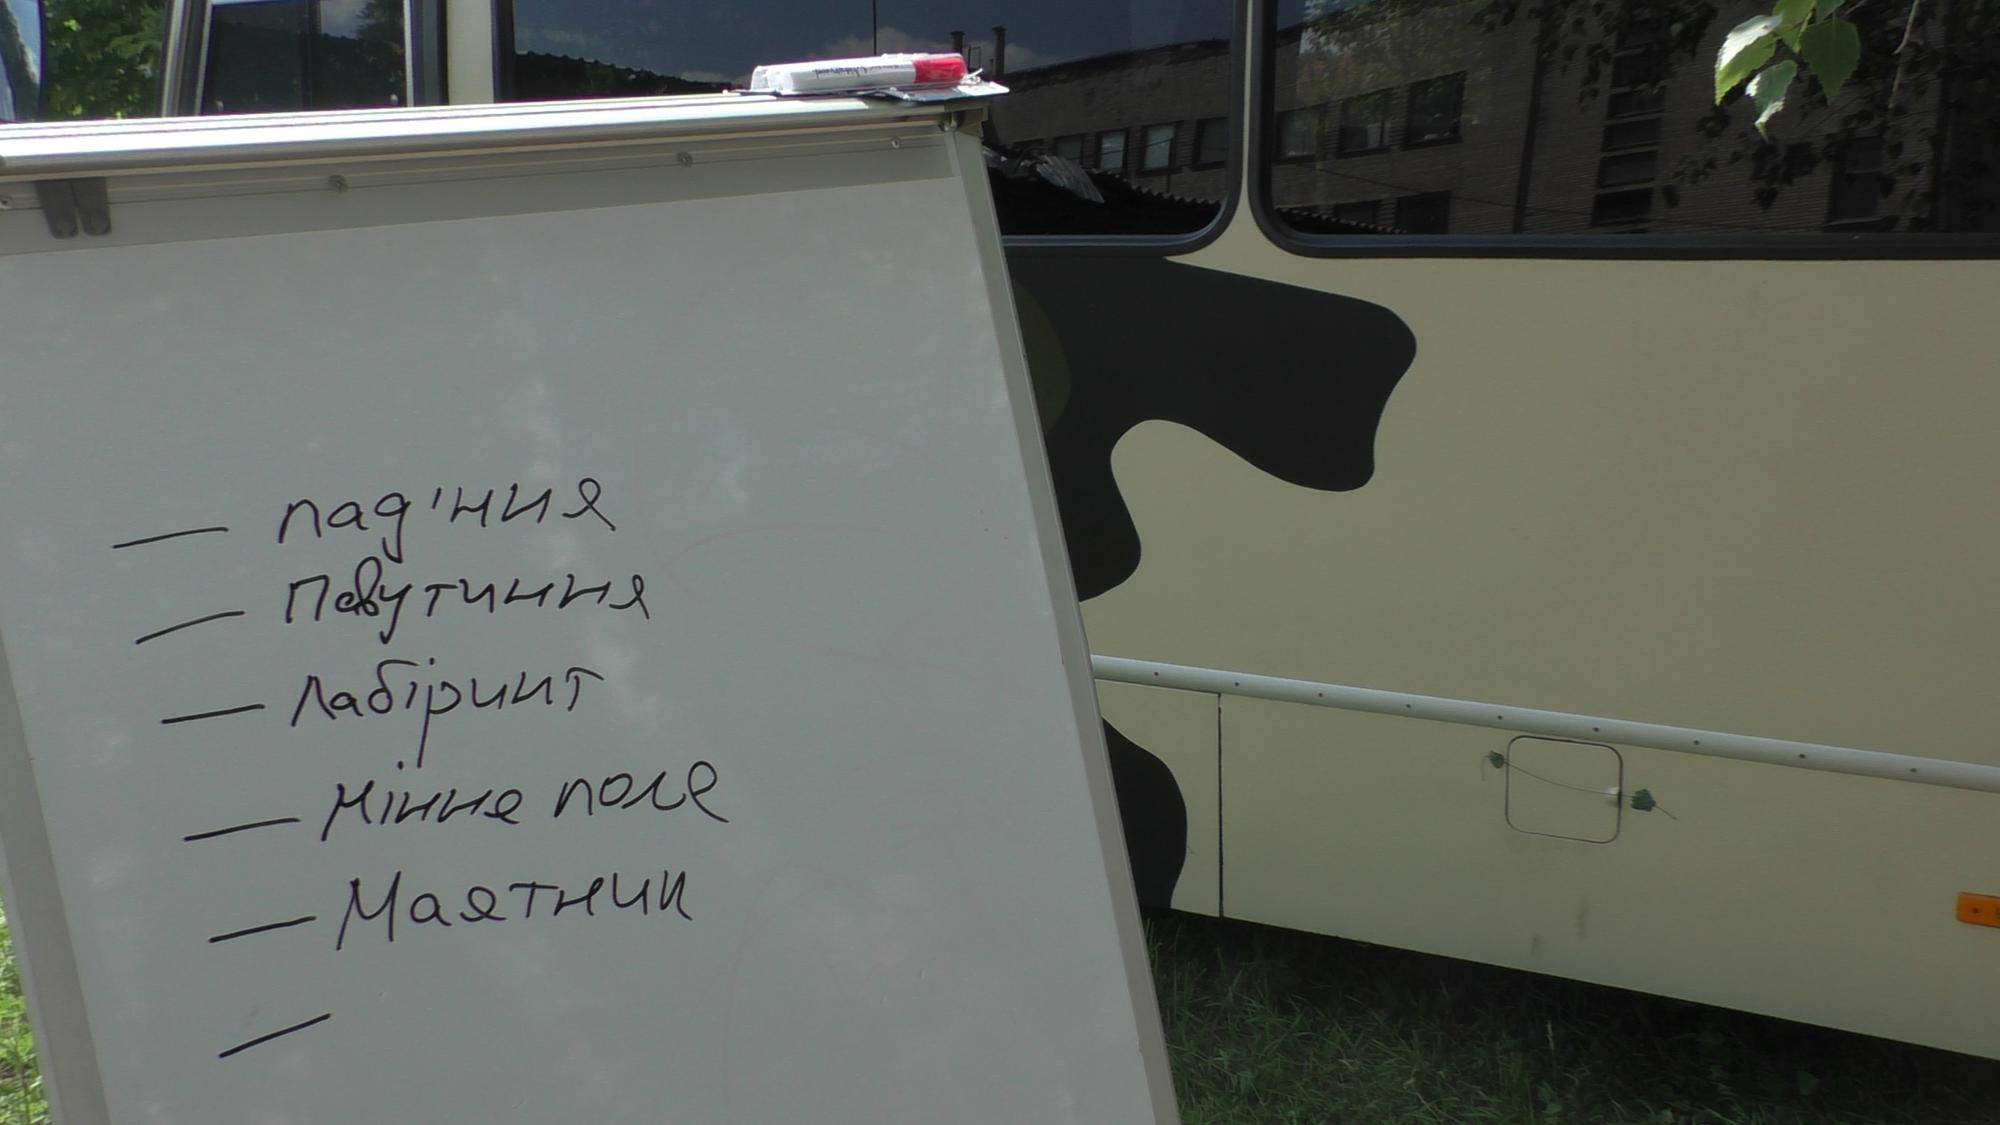 — пад'ння
— Павутиння
— Лабіринт
— Мінне поле
— Маятник
—